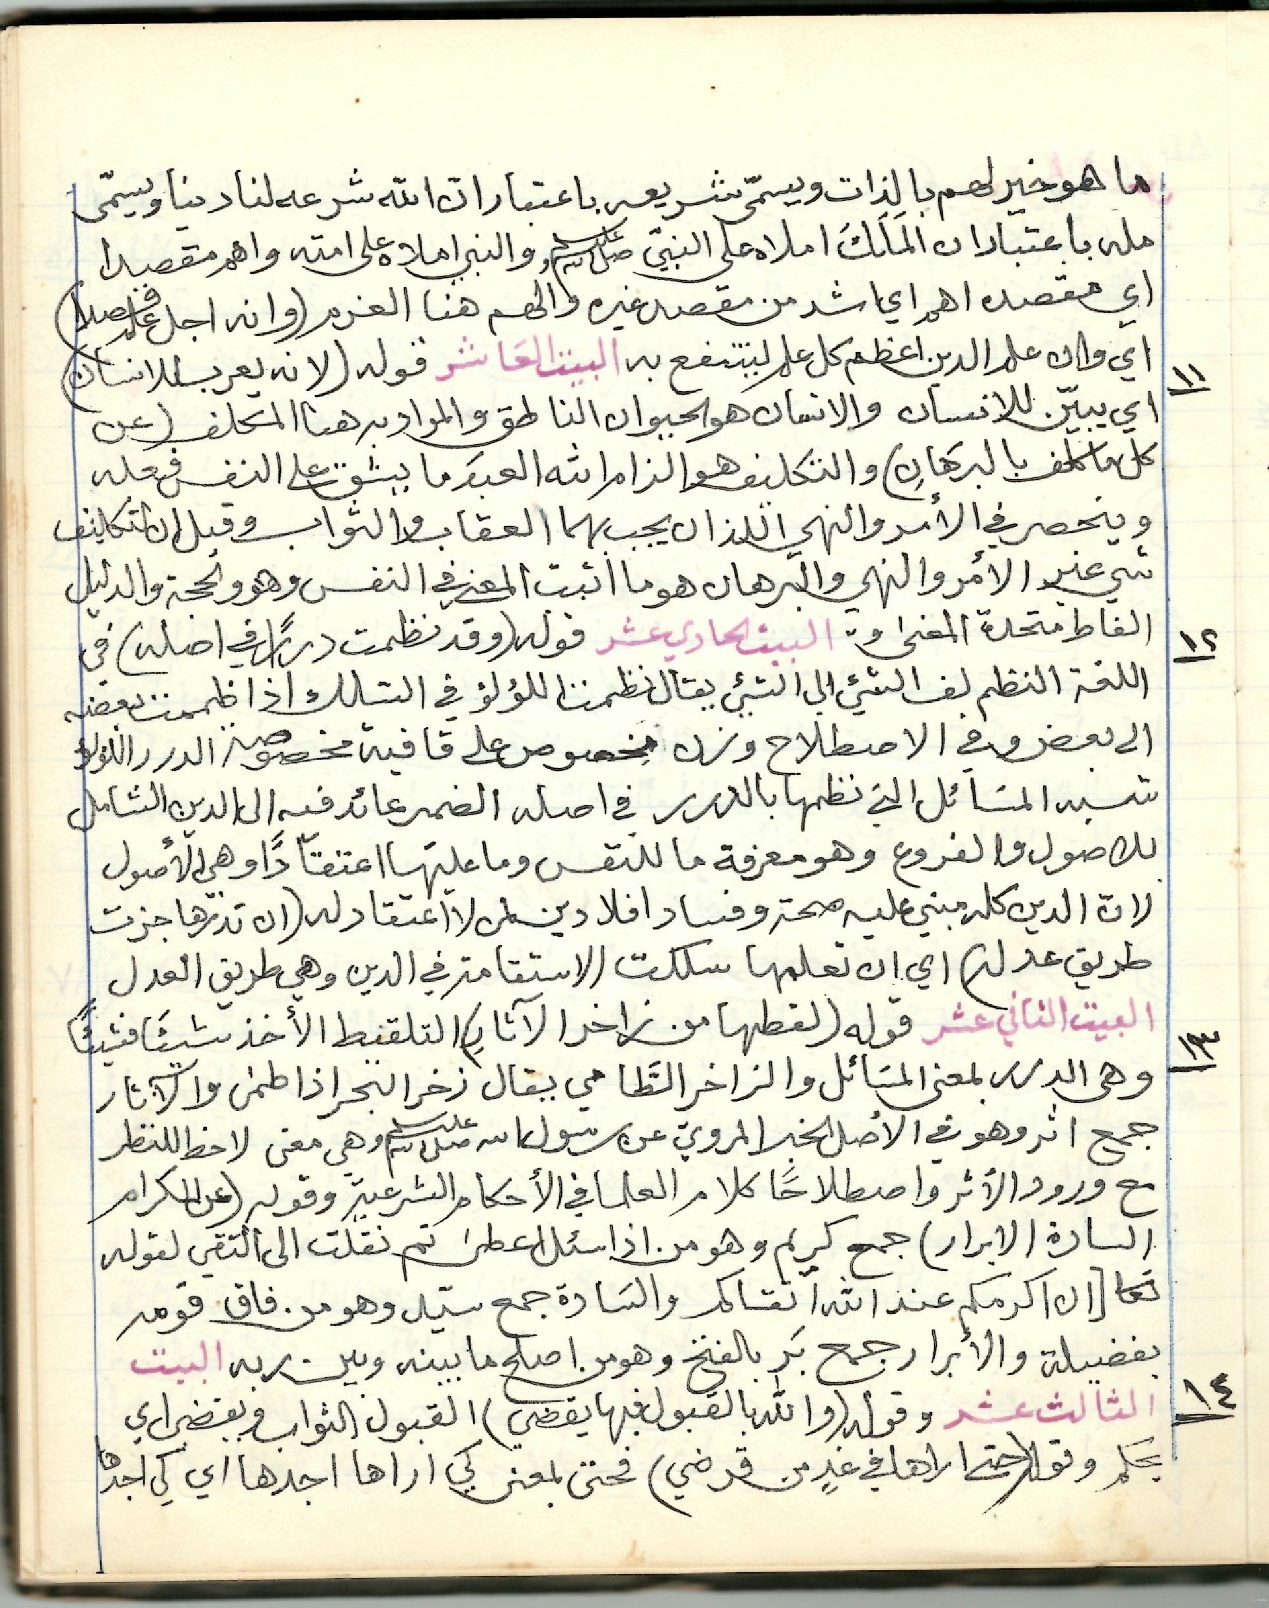 ما هو خير لهم بالذات ويسمّى شريعه باعتبار ان الله شرعه لنا دينا ويسمّى
مله باعتبار ان المَلَكَ املاه على النبيّ صلى الله عليه وسلم والنبي املاه على امته واهم مقصدا
اي مقصده اهم اي اشد من مقصد غيره والهم هنا العزم (وانه اجل علم فصلا)
اي وان علم الدين اعظم كل علم لينتفع به البيت العَاشر قوله (لانه يعرب للانسان)
١١
اي يبيّن للانسان والانسان هو الحيوان الناطق والمراد به هنا المكلف (عن
كل ما كلف بالبرهَانِ) والتكليف هو الزام الله العبدَ ما يشق على النفس فعله
وينحصر في الأمر والنهي اللذان يجب بهما العقاب والثواب وقيل ان التكليف
شي غير الأمر والنهي والبرهان هو ما اثبت المعنى في النفس وهو والحجة والدليل
الفاط متحدة المعنى و: البيت الحادي عشر قوله (وقد نظمت دررًا في اصله) في
١٢
اللغة النظم لف الشئ الى الشئ يقال نظمت اللؤلؤ في السلك اذا ظممت بعضه
الى بعض وفي الاصطلاح وزن مخصوص على قافية مخصوصة الدرر اللؤلؤ
شبه المسَائل التي نظمها بالدرر في اصله الضمير عائد فيه الى الدين الشامل
للاصول والفروع وهو معرفة ما للنفس وما عليها اعتقادًا وهي الأصول
لان الدين كله مبني عليه صحة وفسادا فلا دين لمن لا اعتقاد له (ان تدرها جزت
طريق عدله) اي ان تعلمها سلكت الاستقامة في الدين وهي طريق العدل
البيت الثاني عشر قوله (لقطها من زاخر الآثارِ) التلقيط الأخذ شيئًا فشيئًا
١٣
وهي الدرر بمعنى المسَائل والزاخر الطَامي يقال زخر البحر اذا طمى والآثار
جمع اثر وهو في الأصل الخبر المروي عن رسول الله صلى الله عليه وسلم وهي معنى لاحظ للنظر
مع ورود الأثر واصطلاحًا كلام العلما في الأحكام الشرعية وقوله (عن الكرام
السادة الابرار) جمع كريم وهو من اذا سئل اعطى ثم نقلت الى التقي لقوله
تعا [ان اكرمكم عند الله اتقاكم والسَادة جمع سيد وهو من فاق قومه
بفضيلة والأبرار جمع بَر بالفتح وهو من اصلح ما بينه وبين ربه البيت
الثالث عشر وقوله (والله بالقبول فيها يقضي) القبول الثواب ويقضي اي
١٤
يحكم وقوله (حتى اراها في غدٍ من قرضي) فحتى بمعنى كي اراها اجدها اي كي اجدها